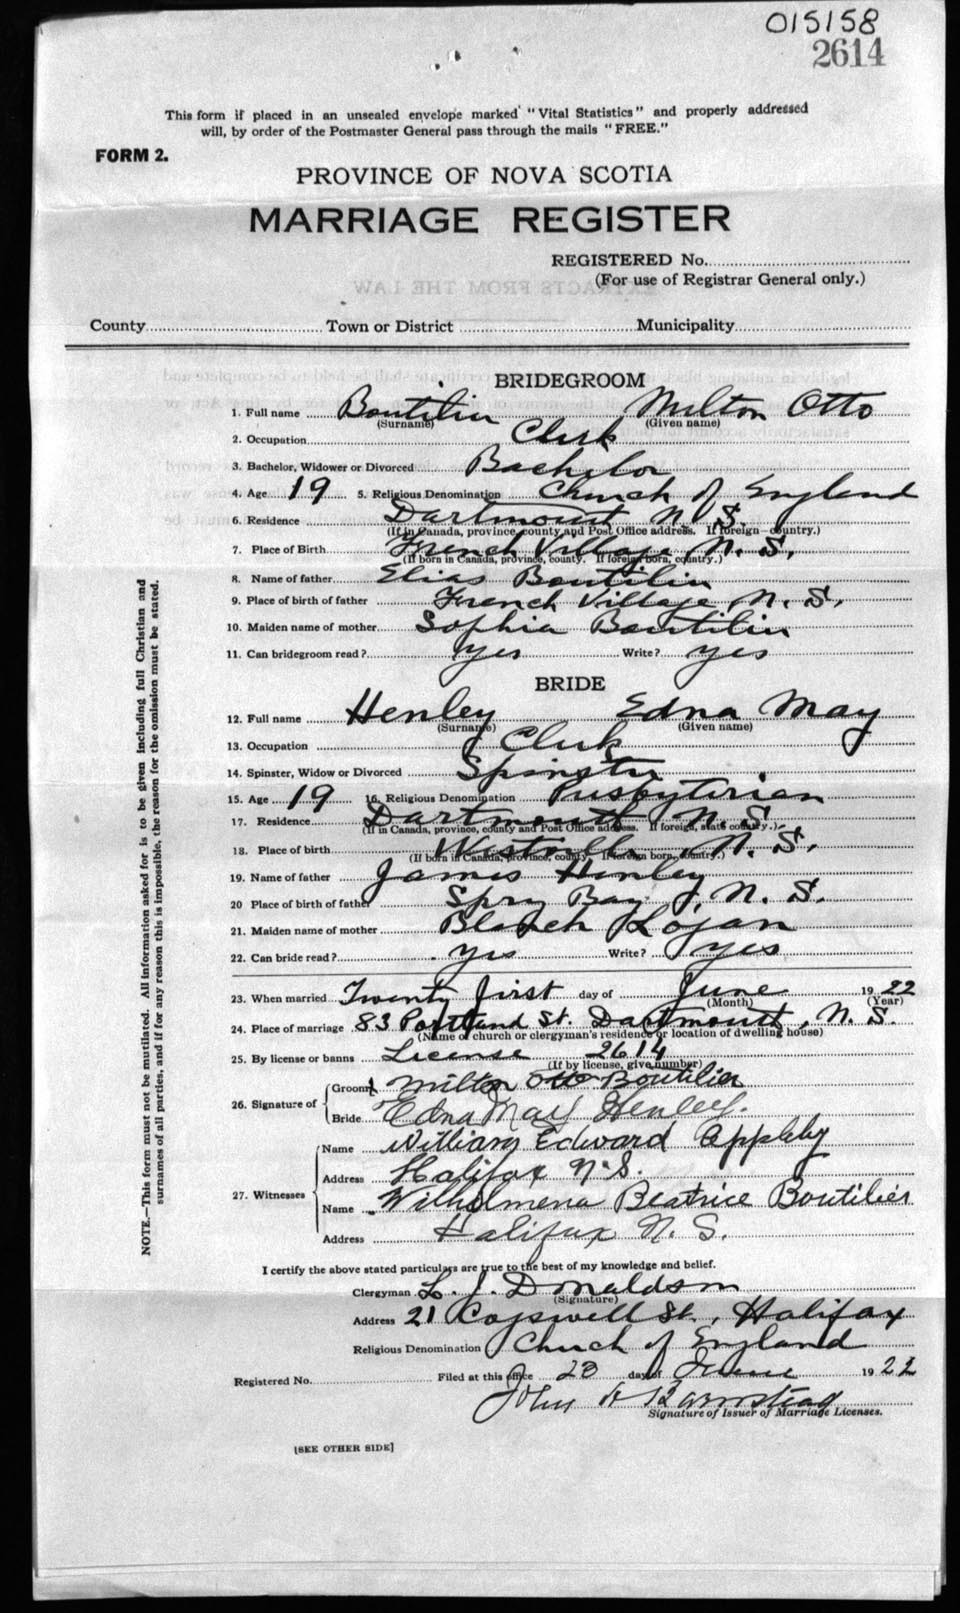 015158
2614
This form if placed in an unsealed envelope marked "Vital Statistics" and properly addressed
will, by order of the Postmaster General pass through the mails "FREE."
FORM 2.
PROVINCE OF NOVA SCOTIA
MARRIAGE REGISTER
REGISTERED No.
(For use of Registrar General only.)
EXTRACTS FROM THE LAW
County Town or District Municipality
BRIDEGROOM
1. Full name Boutilier Milton Otto
(Surname) (Given name)
2. Occupation Clerk
3. Bachelor, Widower or Divorced Bachelor
4. Age 19 5. Religious Denomination Church of England
6. Residence Dartmouth N. S.
(If in Canada, province, county and Post Office address. If foreign—country.)
7. Place of Birth French Village N. S.
(If born in Canada, province, county. If foreign born, country.)
8. Name of father Elias Boutilier
9. Place of birth of father French Village N. S.
10. Maiden name of mother Sophia Boutilier
11. Can bridegroom read? yes Write? yes
BRIDE
12. Full name Henley Edna May
(Surname) (Given name)
13. Occupation Clerk
14. Spinster, Widow or Divorced Spinster
15. Age 19 16. Religious Denomination Presbyterian
17. Residence Dartmouth N. S.
(If in Canada, province, county and Post Office address. If foreign, state country.)
18. Place of birth Westville N. S.
(If born in Canada, province, county. If foreign born, country.)
19. Name of father James Henley
20 Place of birth of father Spry Bay, N. S.
21. Maiden name of mother Blanch Logan
22. Can bride read? yes Write? yes
23. When married Twenty first day of June 1922
(Month) (Year)
24. Place of marriage 83 Portland St. Dartmouth, N. S.
(Name of church or clergyman's residence or location of dwelling house)
25. By license or banns License 2614
(If by license, give number)
26. Signature of Groom Milton Otto Boutilier
Bride Edna May Henley.
27. Witnesses
Name William Edward Appleby
Address Halifax N.S.
Name Wilhelmena Beatrice Boutilier
Address Halifax N. S.
I certify the above stated particulars are true to the best of my knowledge and belief.
Clergyman L. J. Donaldson
(Signature)
Address 21 Cogswell St., Halifax
Religious Denomination Church of England
Registered No. Filed at this office 23 day of June 1922
John H
Signature of Issuer of Marriage Licenses.
[SEE OTHER SIDE]
NOTE.—This form must not be mutilated. All information asked for is to be given including full Christian and
surnames of all parties, and if for any reason this is impossible, the reason for the omission must be stated.